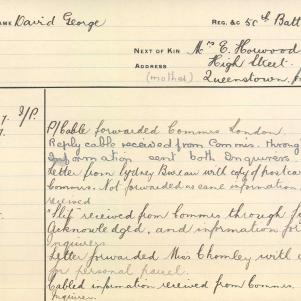 AME David George
REG. &c 50th Batt
NEXT OF KIN Mrs E. Horwood
ADDRESS High Street.
(mother) Queenstown,
I/P.
P/Cable forwarded Commis London.
Reply cable received from Commis. throug
Information sent both Inquirers.
Letter from Sydney Bureau with copy of postcar
Commis. Not forwarded as same information
received
Slip received from Commis through
Acknowledged, and information for
Inquirers
Letter forwarded Miss Chomley with
for personal parcel.
Cabled information received from Commis.
Inquirers.